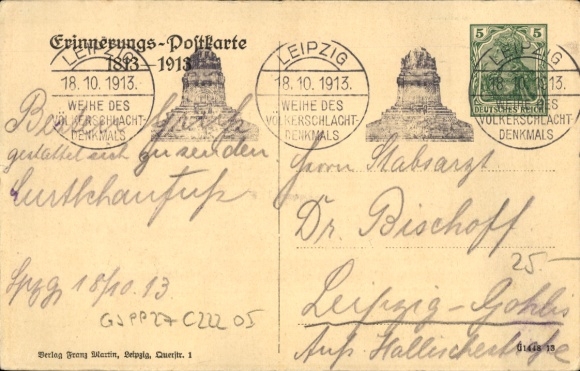 Erinnerungs-Postkarte
1813–1913
LEIPZIG
18.10.1913.
WEIHE DES
VÖLKERSCHLACHT-
DENKMALS
LEIPZIG
18.10.1913.
WEIHE DES
VÖLKERSCHLACHT-
DENKMALS
LEIPZIG
18.10.1913.
WEIHE DES
VÖLKERSCHLACHT-
DENKMALS
5 5
DEUTSCHES REICH
Besten Gruß
gestattet sich zu senden
Lpzg 18/10.13
GJPP27C222 05
Verlag Franz Martin, Leipzig, Querstr. 1
Herrn Stabsarzt
Dr. Bischoff
25.-
Leipzig-Gohlis
Äuß. Hallischestraße